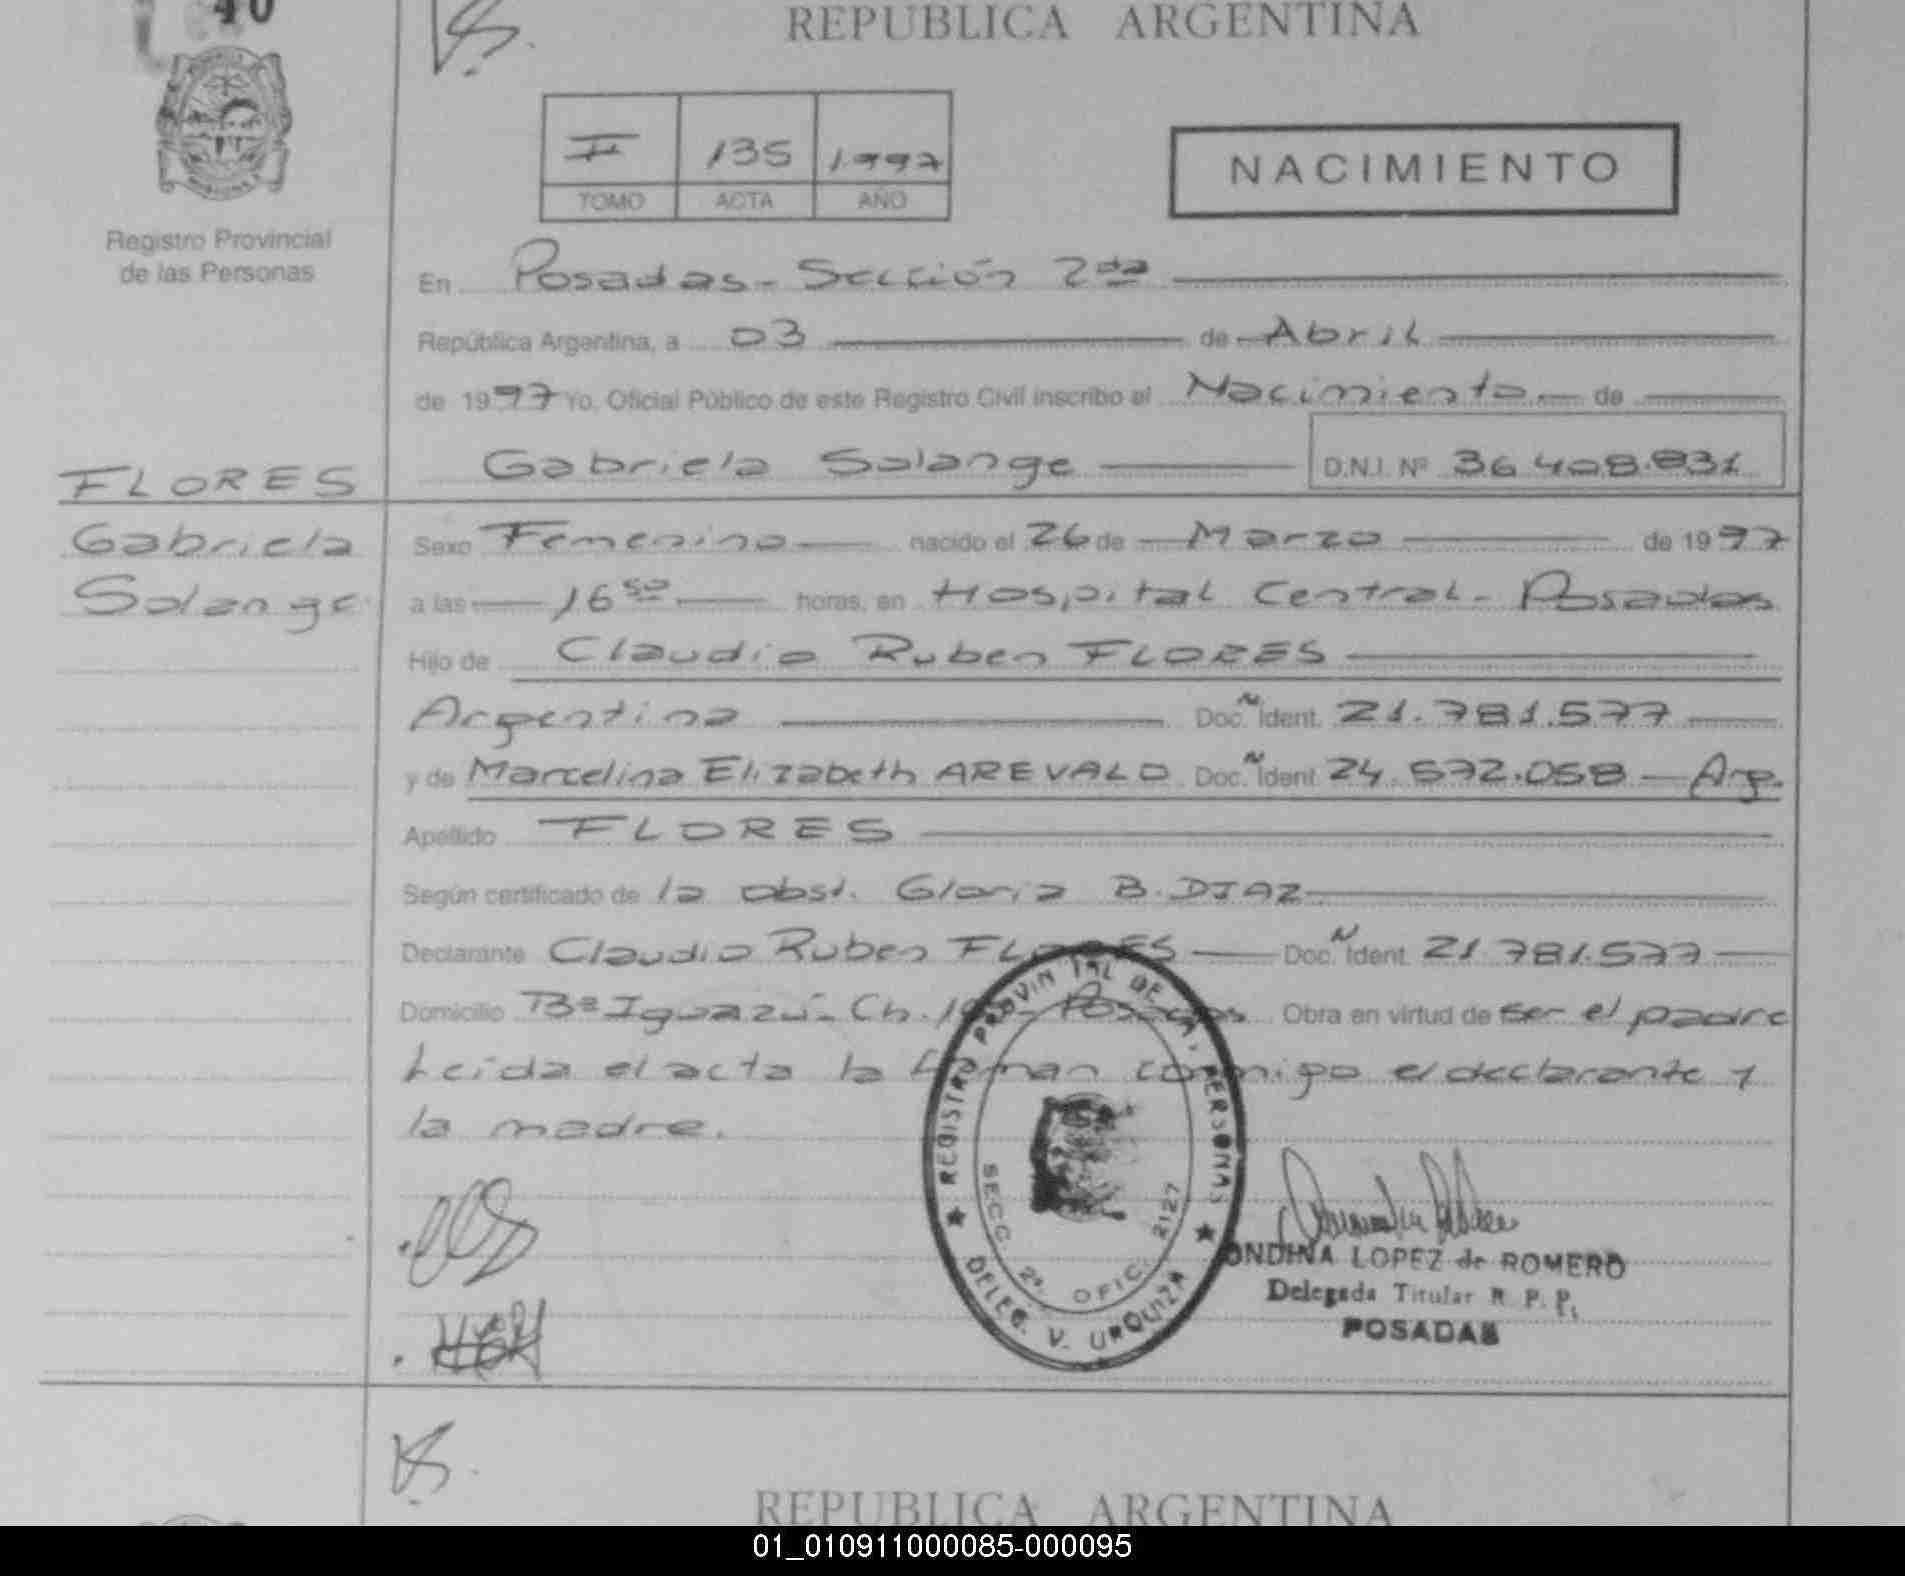 40
REPUBLICA ARGENTINA
II 135 1997
TOMO ACTA AÑO
NACIMIENTO
Registro Provincial
de las Personas
En Posadas - Sección 2da
República Argentina, a 03 de Abril
de 1997 Yo, Oficial Público de este Registro Civil inscribo el Nacimiento de
Gabriela Solange D.N.I. Nº 36.408.831
FLORES
Gabriela
Solange
Sexo Femenino nacido el 26 de Marzo de 1997
a las 16 50 horas, en Hospital Central - Posadas
Hijo de Claudio Ruben FLORES
Argentina Doc. Ident. 21.781.577
y de Marcelina Elizabeth AREVALO Doc. Ident. 24.572.058 - Arg.
Apellido FLORES
Según certificado de la obst. Gloria B. DIAZ
Declarante Claudio Ruben FLORES Doc. Ident. 21.781.577
Domicilio Bº Iguazú - Ch. Posadas Obra en virtud de ser el padre
Leída el acta la firman conmigo el declarante y
la madre.
REGISTRO PROVINCIAL DE LAS PERSONAS
SECC. 2ª. OFIC. 2127
DELEG. V. URQUIZA
ONDINA LOPEZ de ROMERO
Delegada Titular R. P. P.
POSADAS
REPUBLICA ARGENTINA
01_010911000085-000095